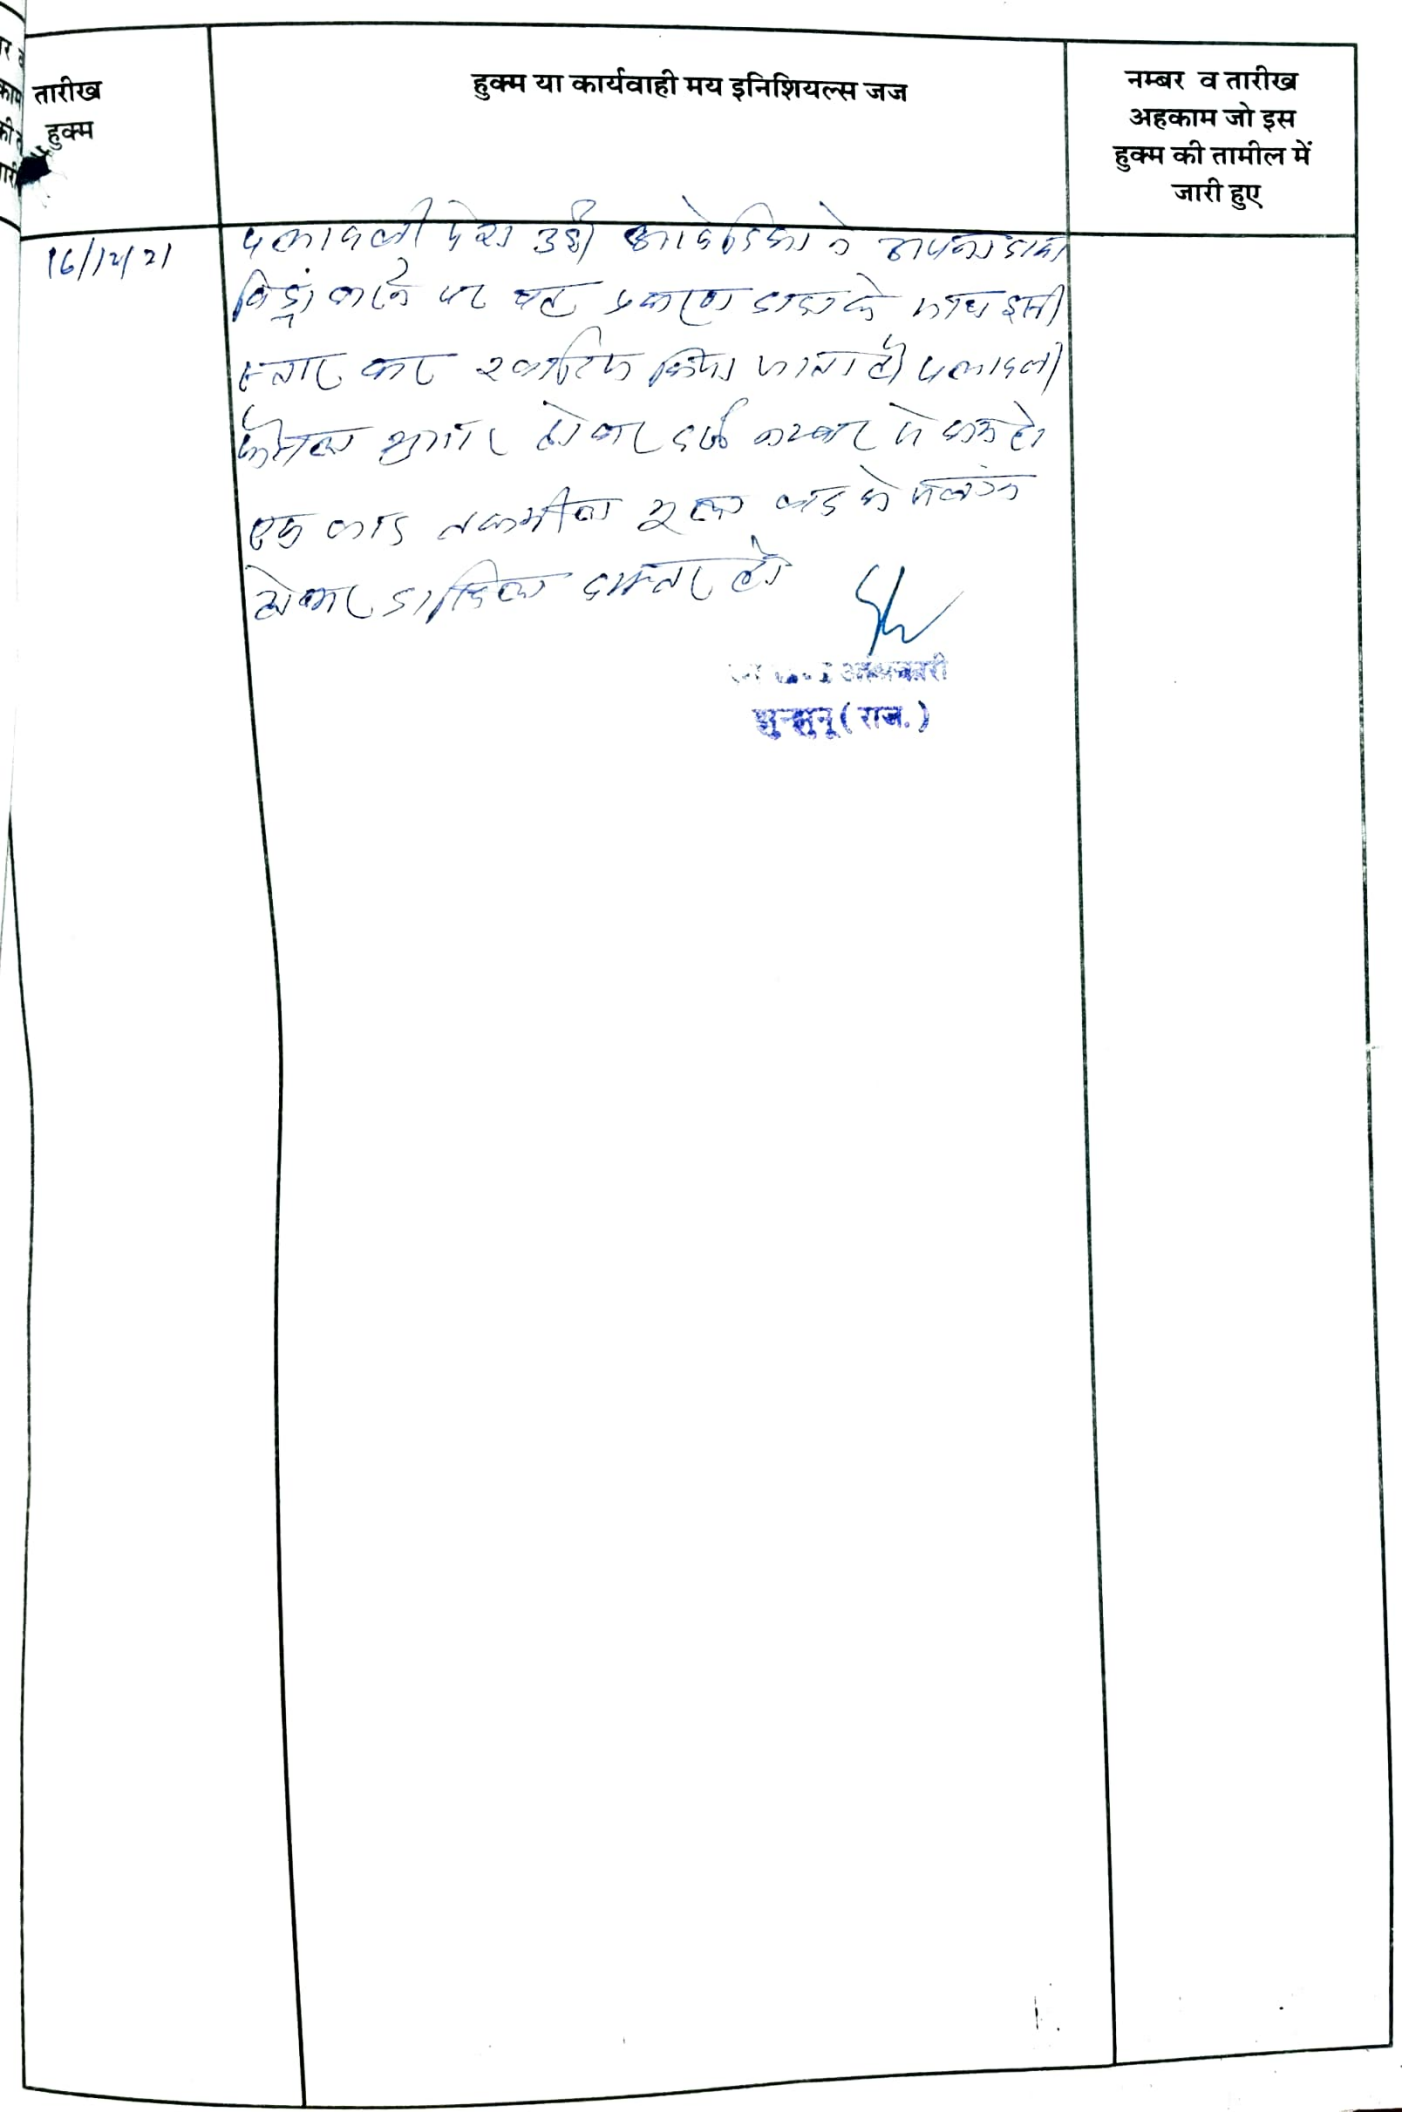 तारीख
हुक्म
हुक्म या कार्यवाही मय इनिशियल्स जज
नम्बर व तारीख
अहकाम जो इस
हुक्म की तामील में
जारी हुए
16/12/21
पत्रावली पेश हुई आवेदिका ने अपना दावा
विड्रा करने पर यह प्रकरण के साथ इसी
स्तर पर खारिज किया जाता है पत्रावली
फैसला शुमार होकर दर्ज नम्बर से कम हो
एक बाद तकमील मूल वाद के संलग्न
होकर दाखिल दफ्तर हो
अधिकारी
झुन्झुनू (राज.)